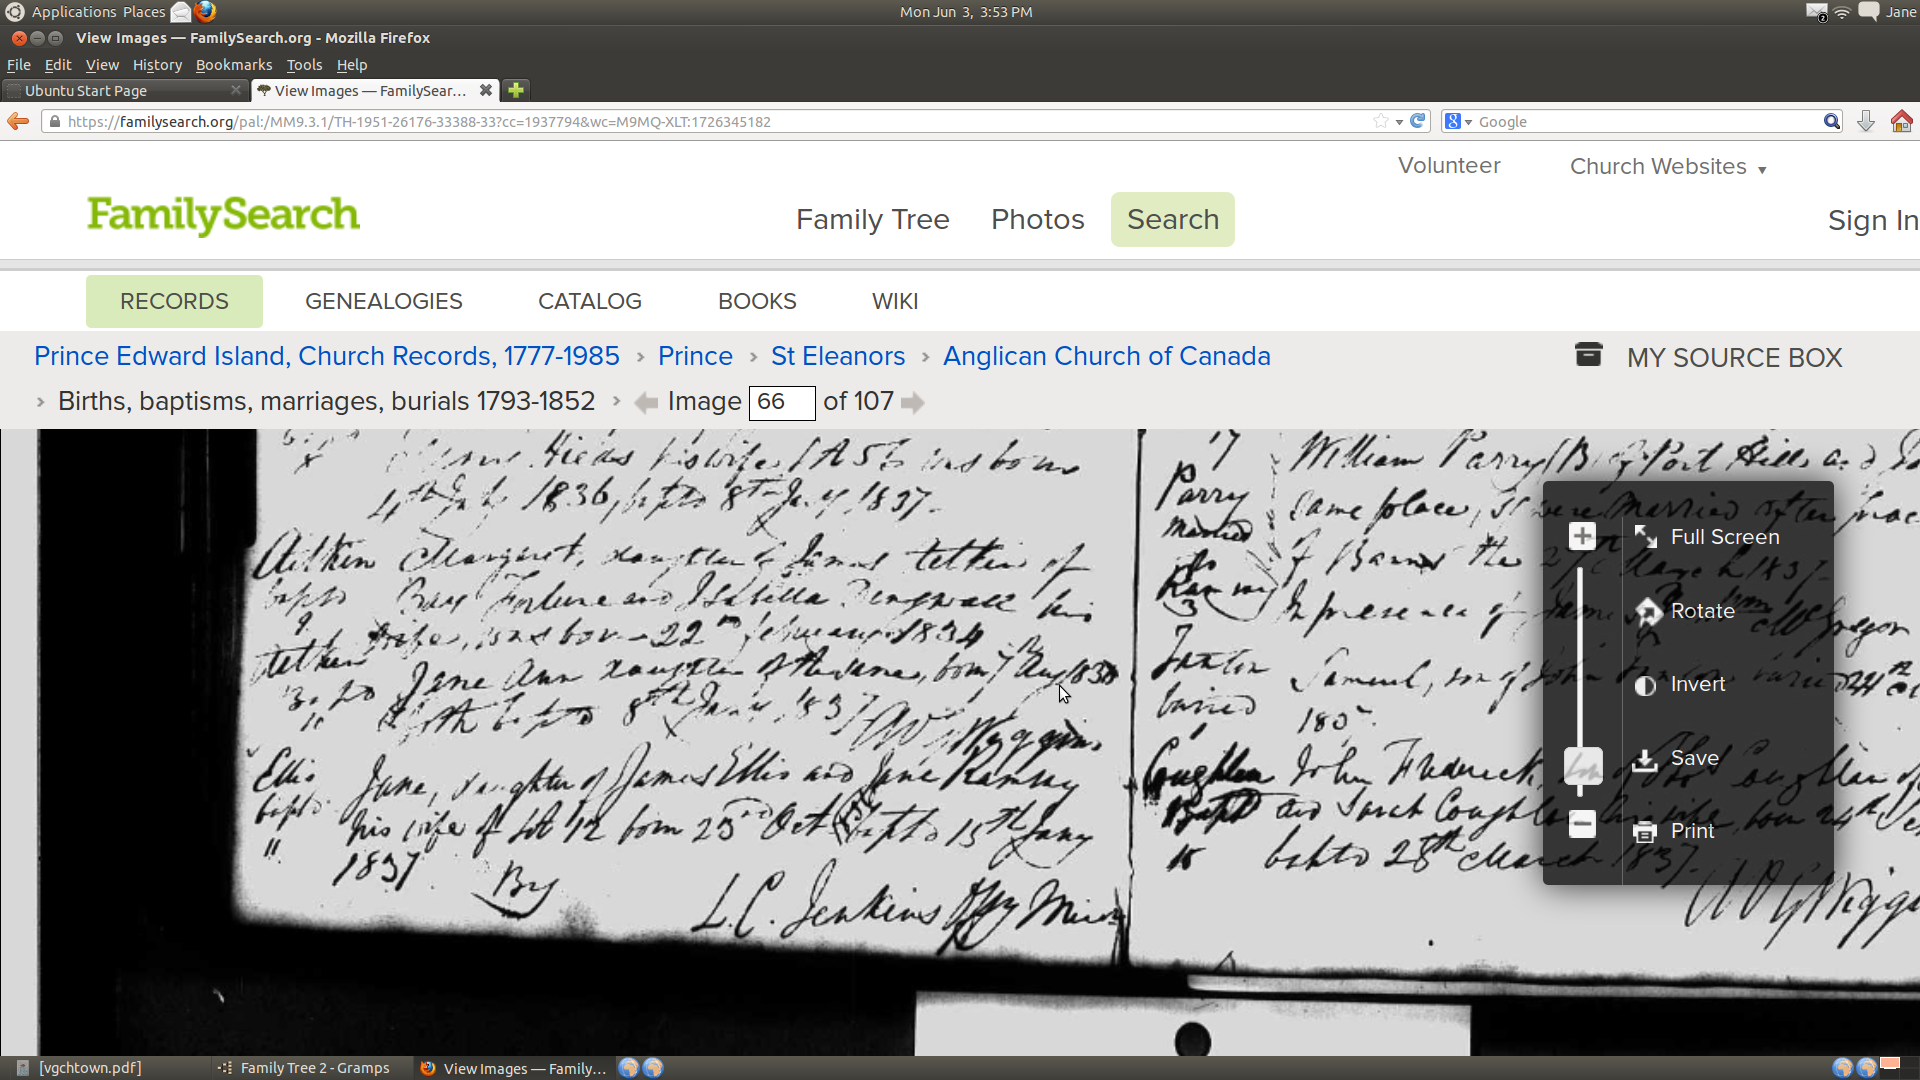 Applications Places
Mon Jun 3, 3:53 PM
Jane
View Images — FamilySearch.org - Mozilla Firefox
File Edit View History Bookmarks Tools Help
Ubuntu Start Page
View Images — FamilySear...
https://familysearch.org/pal:/MM9.3.1/TH-1951-26176-33388-33?cc=1937794&wc=M9MQ-XLT:1726345182
Google
Volunteer
Church Websites
FamilySearch
Family Tree
Photos
Search
Sign In
RECORDS
GENEALOGIES
CATALOG
BOOKS
WIKI
Prince Edward Island, Church Records, 1777-1985 › Prince › St Eleanors › Anglican Church of Canada
MY SOURCE BOX
› Births, baptisms, marriages, burials 1793-1852 › Image 66 of 107
his wife, was born
1836, bapto 8th Jany 1837.
Aitken Margaret, daughter of James Aitken of
bapto Bay Fortune and Isabella his
9 wife, was born 22nd February 1834
Aitken Jane Ann daughter of the same, born 7th Aug
bapto 8th Jany 1837
Ellis Jane, daughter of James Ellis and Jane Ramsay
bapto his wife of Lot 12 born 25th Oct bapto 15th Jany
" 1837. By
L.C. Jenkins
17 William Parry of Port Hill and
Parry same place, were Married after
married of Banns the
to
Ramsay In presence of James McGregor
3
Samuel, son of John
buried
Coughlan John Frederick, son of Coughlan of
Bapto and Sarah Coughlan his wife, born 24th
bapto 28th March 1837.
Full Screen
Rotate
Invert
Save
Print
[vgchtown.pdf]
Family Tree 2 - Gramps
View Images — Family...